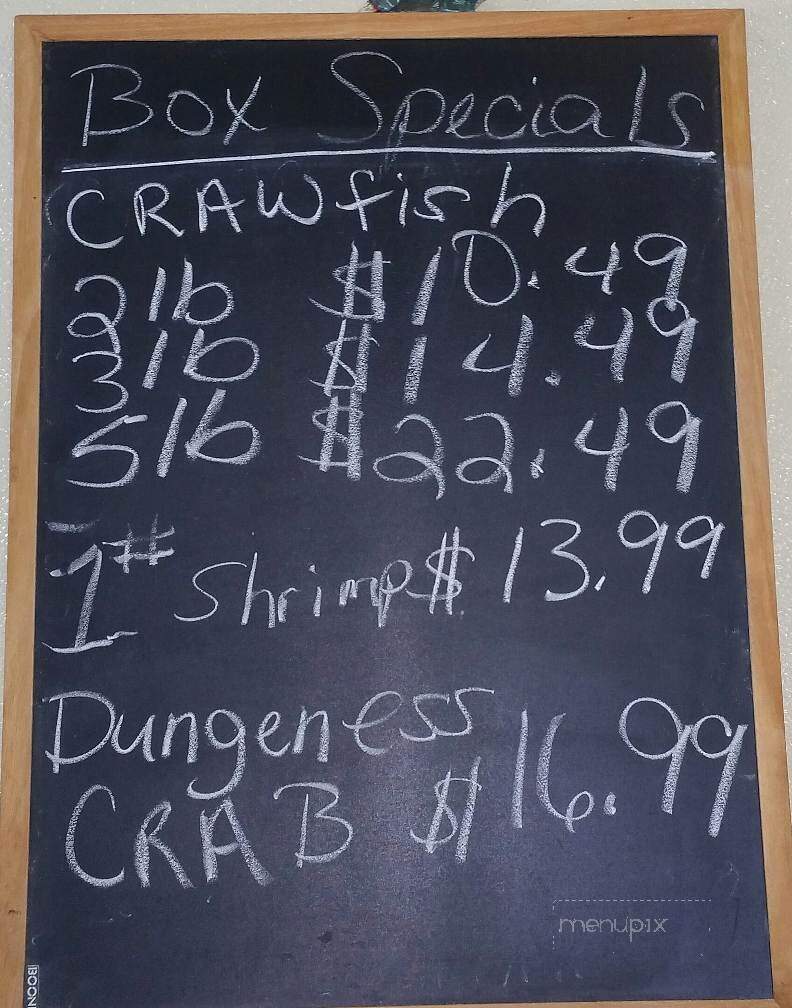 Box Specials
CRAWfish
2 lb $10.49
3 lb $14.49
5 lb $22.49
1# Shrimp $13.99
Dungeness
CRAB $16.99
menupix
BOON